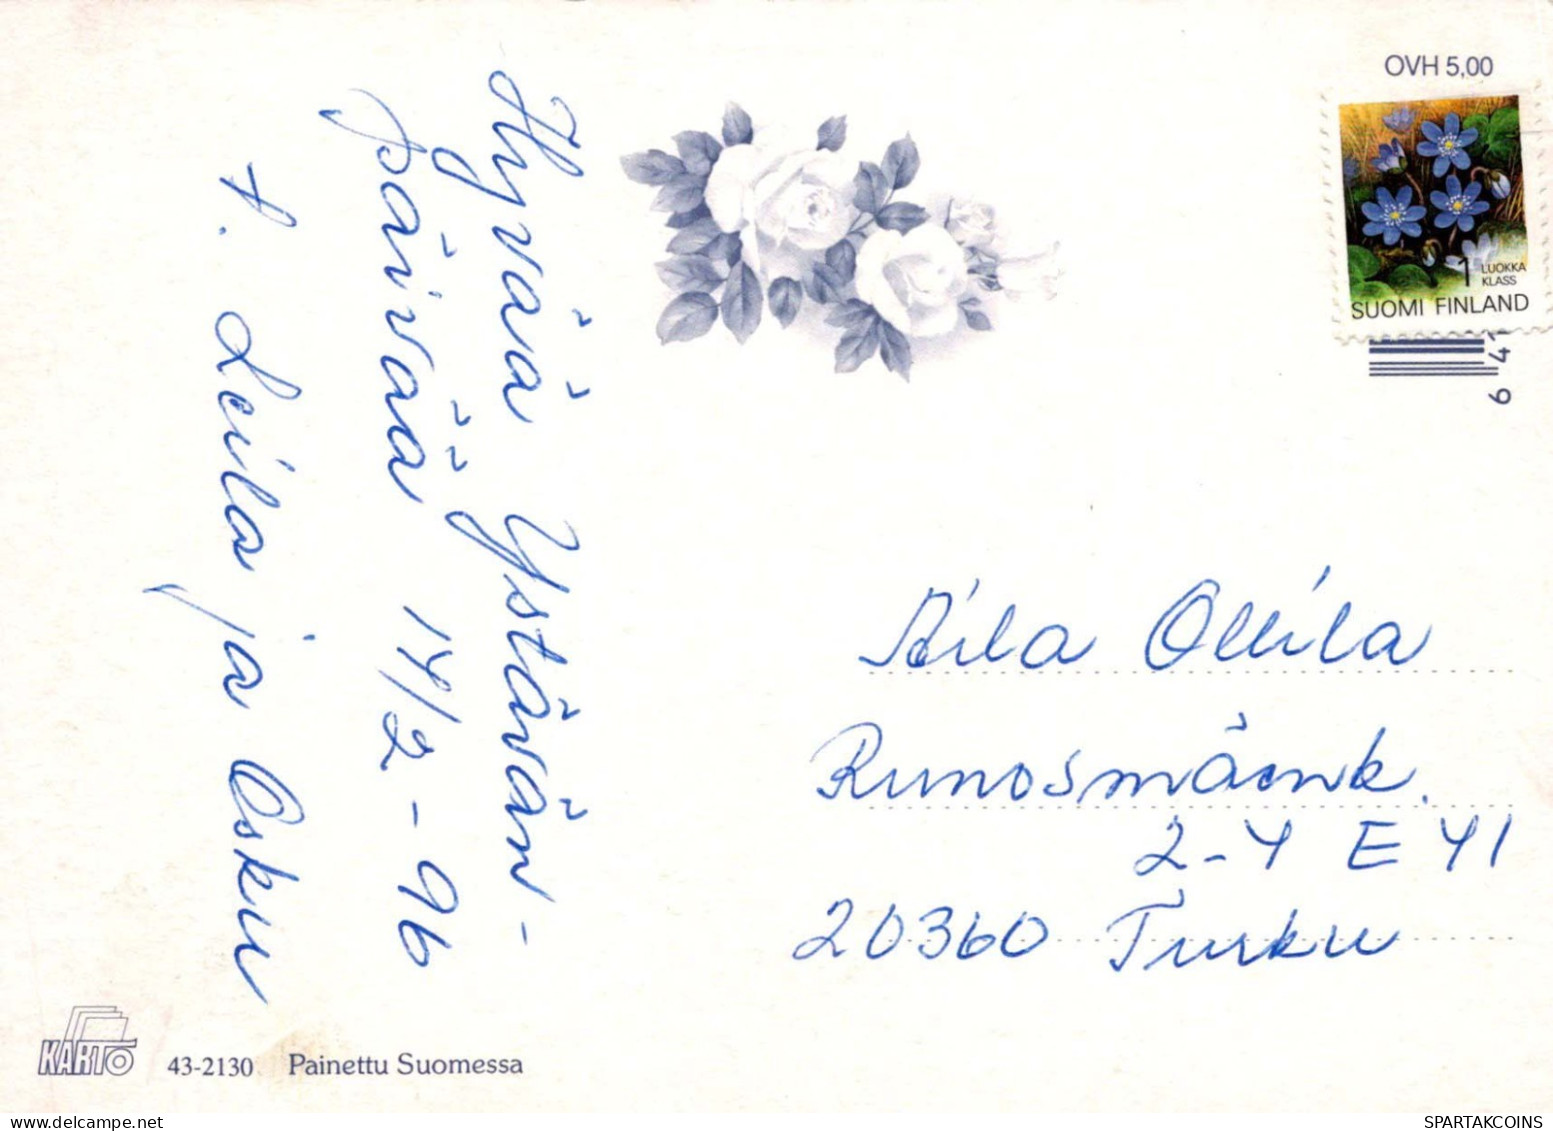 Hyvää Ystävän-
päivää 14/2-96
t. Leila ja Osku
OVH 5,00
1 LUOKKA
KLASS
SUOMI FINLAND
6 41
Aila Ollila
Runosmäenk.
2-4 E 41
20360 Turku
KARTO 43-2130 Painettu Suomessa
www.delcampe.net
SPARTAKCOINS